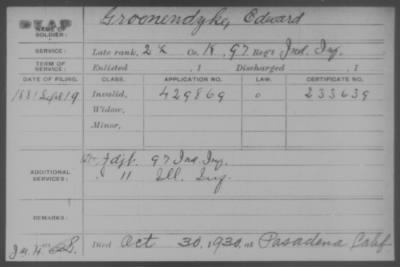 DEAD
NAME OF SOLDIER: Groonendyke, Edward
SERVICE: Late rank, 2 Lt Co. K, 97 Reg't Ind. Inf.
TERM OF SERVICE: Enlisted , 1 Discharged , 1
DATE OF FILING. CLASS. APPLICATION NO. LAW. CERTIFICATE NO.
1881 Sept 19 Invalid, 429869 o 233639
Widow,
Minor,
ADDITIONAL SERVICES: Adjt. 97 Ind. Inf.
" 11 Ill. Inf.
REMARKS:
Died Oct 30, 1930, at Pasadena Calif